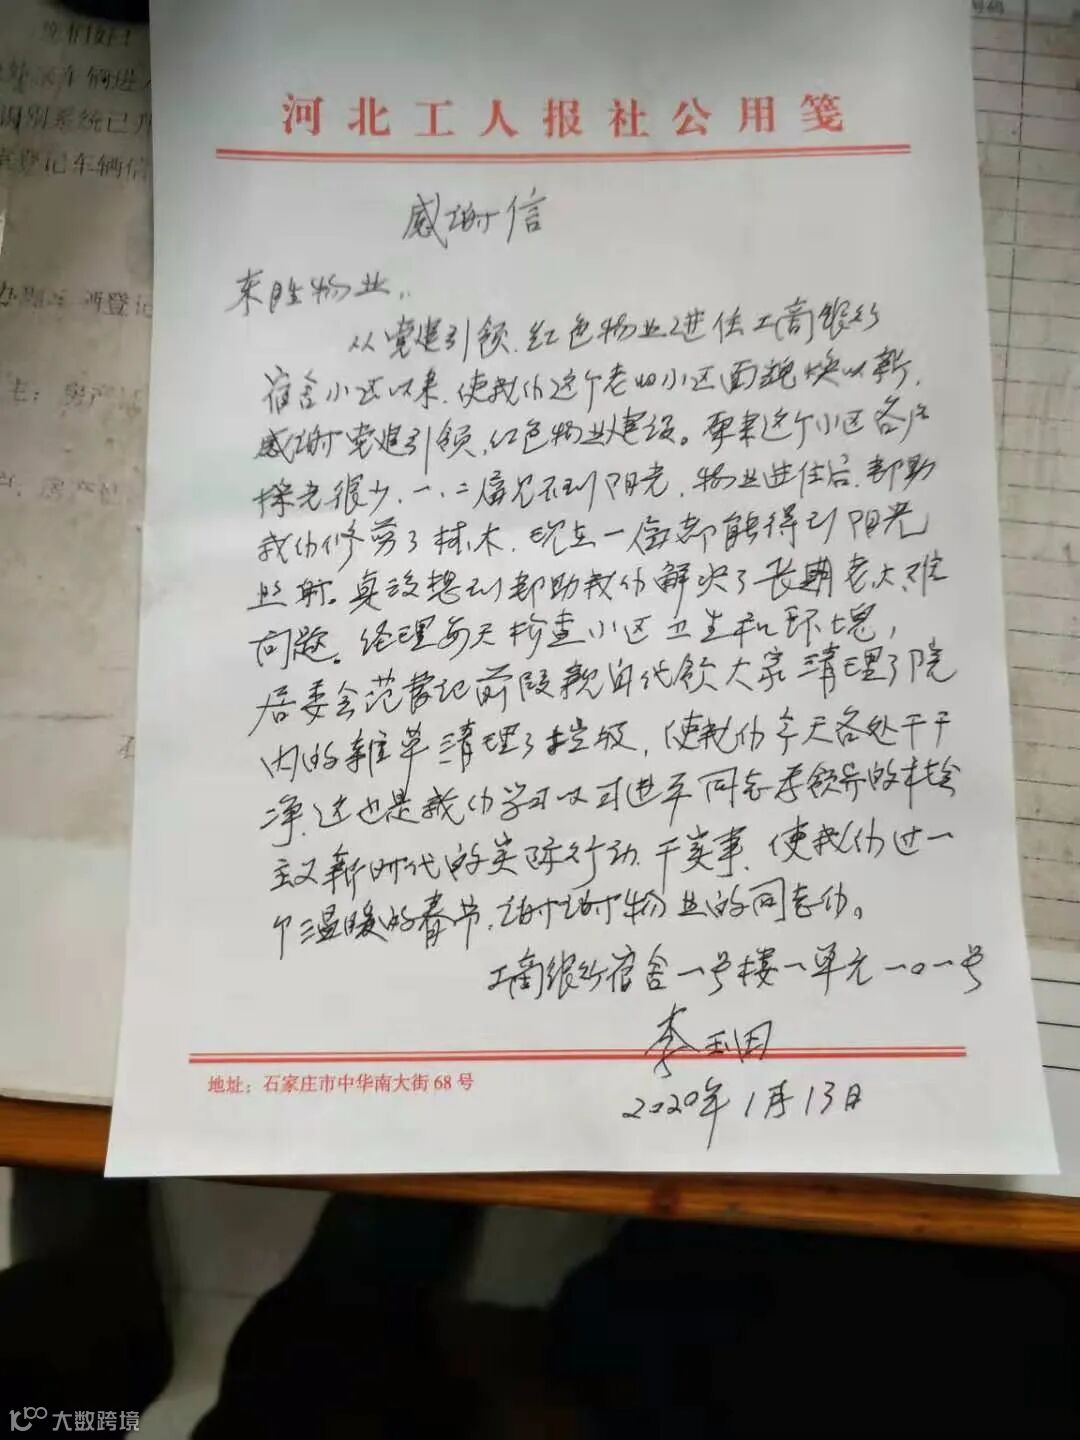 河北工人报社公用笺
感谢信
来胜物业:
从党建引领、红色物业进住工商银行
宿舍小区以来,使我们这个老旧小区面貌焕以新,
感谢党建引领,红色物业建设。原来这个小区各户
採光很少,一、二层见不到阳光,物业进住后,帮助
我们修剪了树木,现在一层都能得到阳光
照射。真没想到帮助我们解决了长期老大难
问题。经理每天检查小区卫生和环境,
居委会范书记前段亲自代领大家清理了院
内的雜草清理了垃圾,使我们今天各处干干
净,这也是我们学习习近平同志及领导的社会
主义新时代的实际行动,干实事,使我们过一
个温暖的春节,谢谢物业的同志们。
工商银行宿舍一号楼一单元一〇一号
李玉田
2020年1月13日
地址:石家庄市中华南大街68号
号码
辆进入
识别系统已升
登记车辆信
再登记
大数跨境